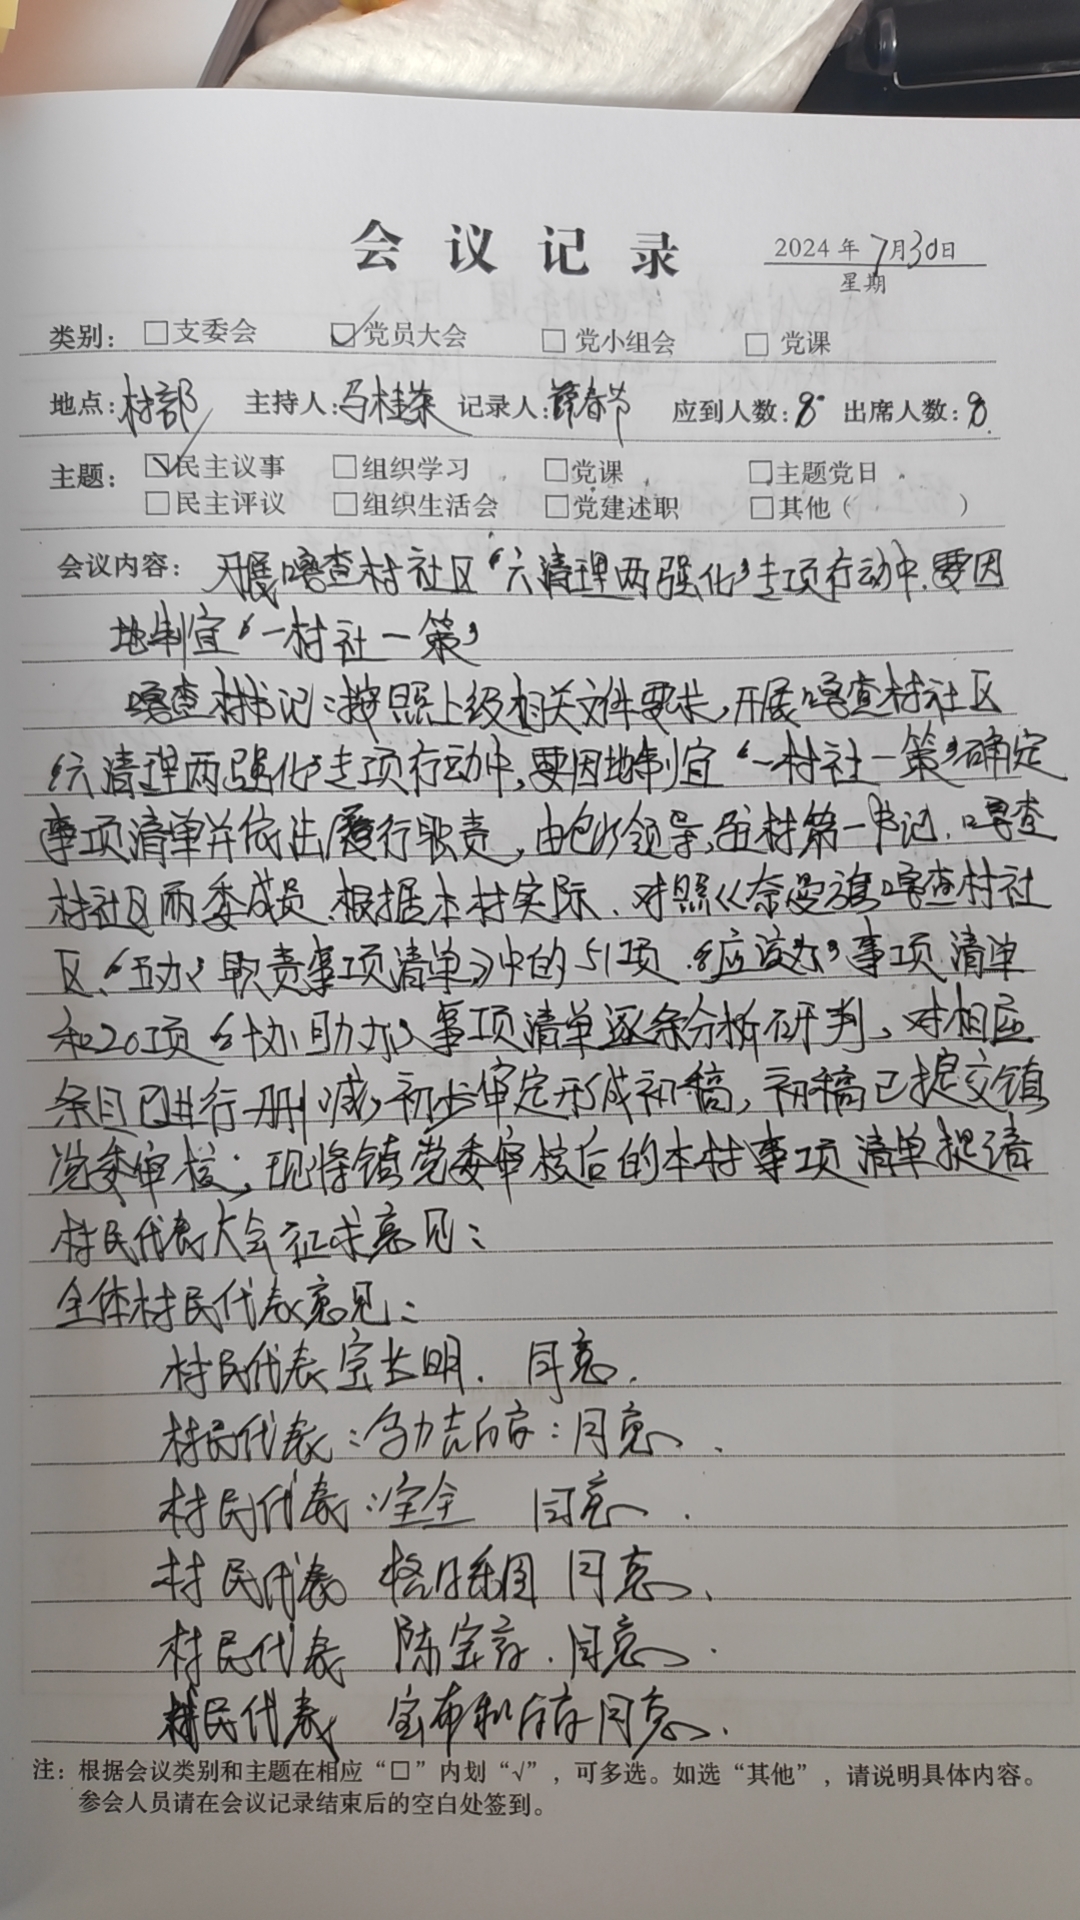 会议记录
2024年7月30日
星期
类别: □支委会 ☑党员大会 □党小组会 □党课
地点:村部 主持人:马桂荣 记录人:薛春节 应到人数:8 出席人数:8
主题: ☑民主议事 □组织学习 □党课 □主题党日
□民主评议 □组织生活会 □党建述职 □其他( )
会议内容: 开展嘎查村社区“六清理两强化”专项行动中,要因
地制宜“一村社一策”
嘎查村书记:按照上级相关文件要求,开展嘎查村社区
“六清理两强化”专项行动中,要因地制宜“一村社一策”确定
事项清单并依法履行职责,由包的领导、驻村第一书记、嘎查
村社区两委成员、根据本村实际、对照《奈曼旗嘎查村社
区、“五办”职责事项清单》中的51项“应该办”事项清单
和20项“协助办”事项清单逐条分析研判、对相应
条目已进行删减,初步审定形成初稿,初稿已提交镇
党委审核;现将镇党委审核后的本村事项清单提请
村民代表大会征求意见:
全体村民代表意见:
村民代表宝长明. 同意.
村民代表:乌力吉白音:同意.
村民代表:宝全 同意.
村民代表 格日乐图 同意.
村民代表 陈宝音.同意.
村民代表 宝布和白音同意.
注:根据会议类别和主题在相应“□”内划“√”,可多选。如选“其他”,请说明具体内容。
参会人员请在会议记录结束后的空白处签到。